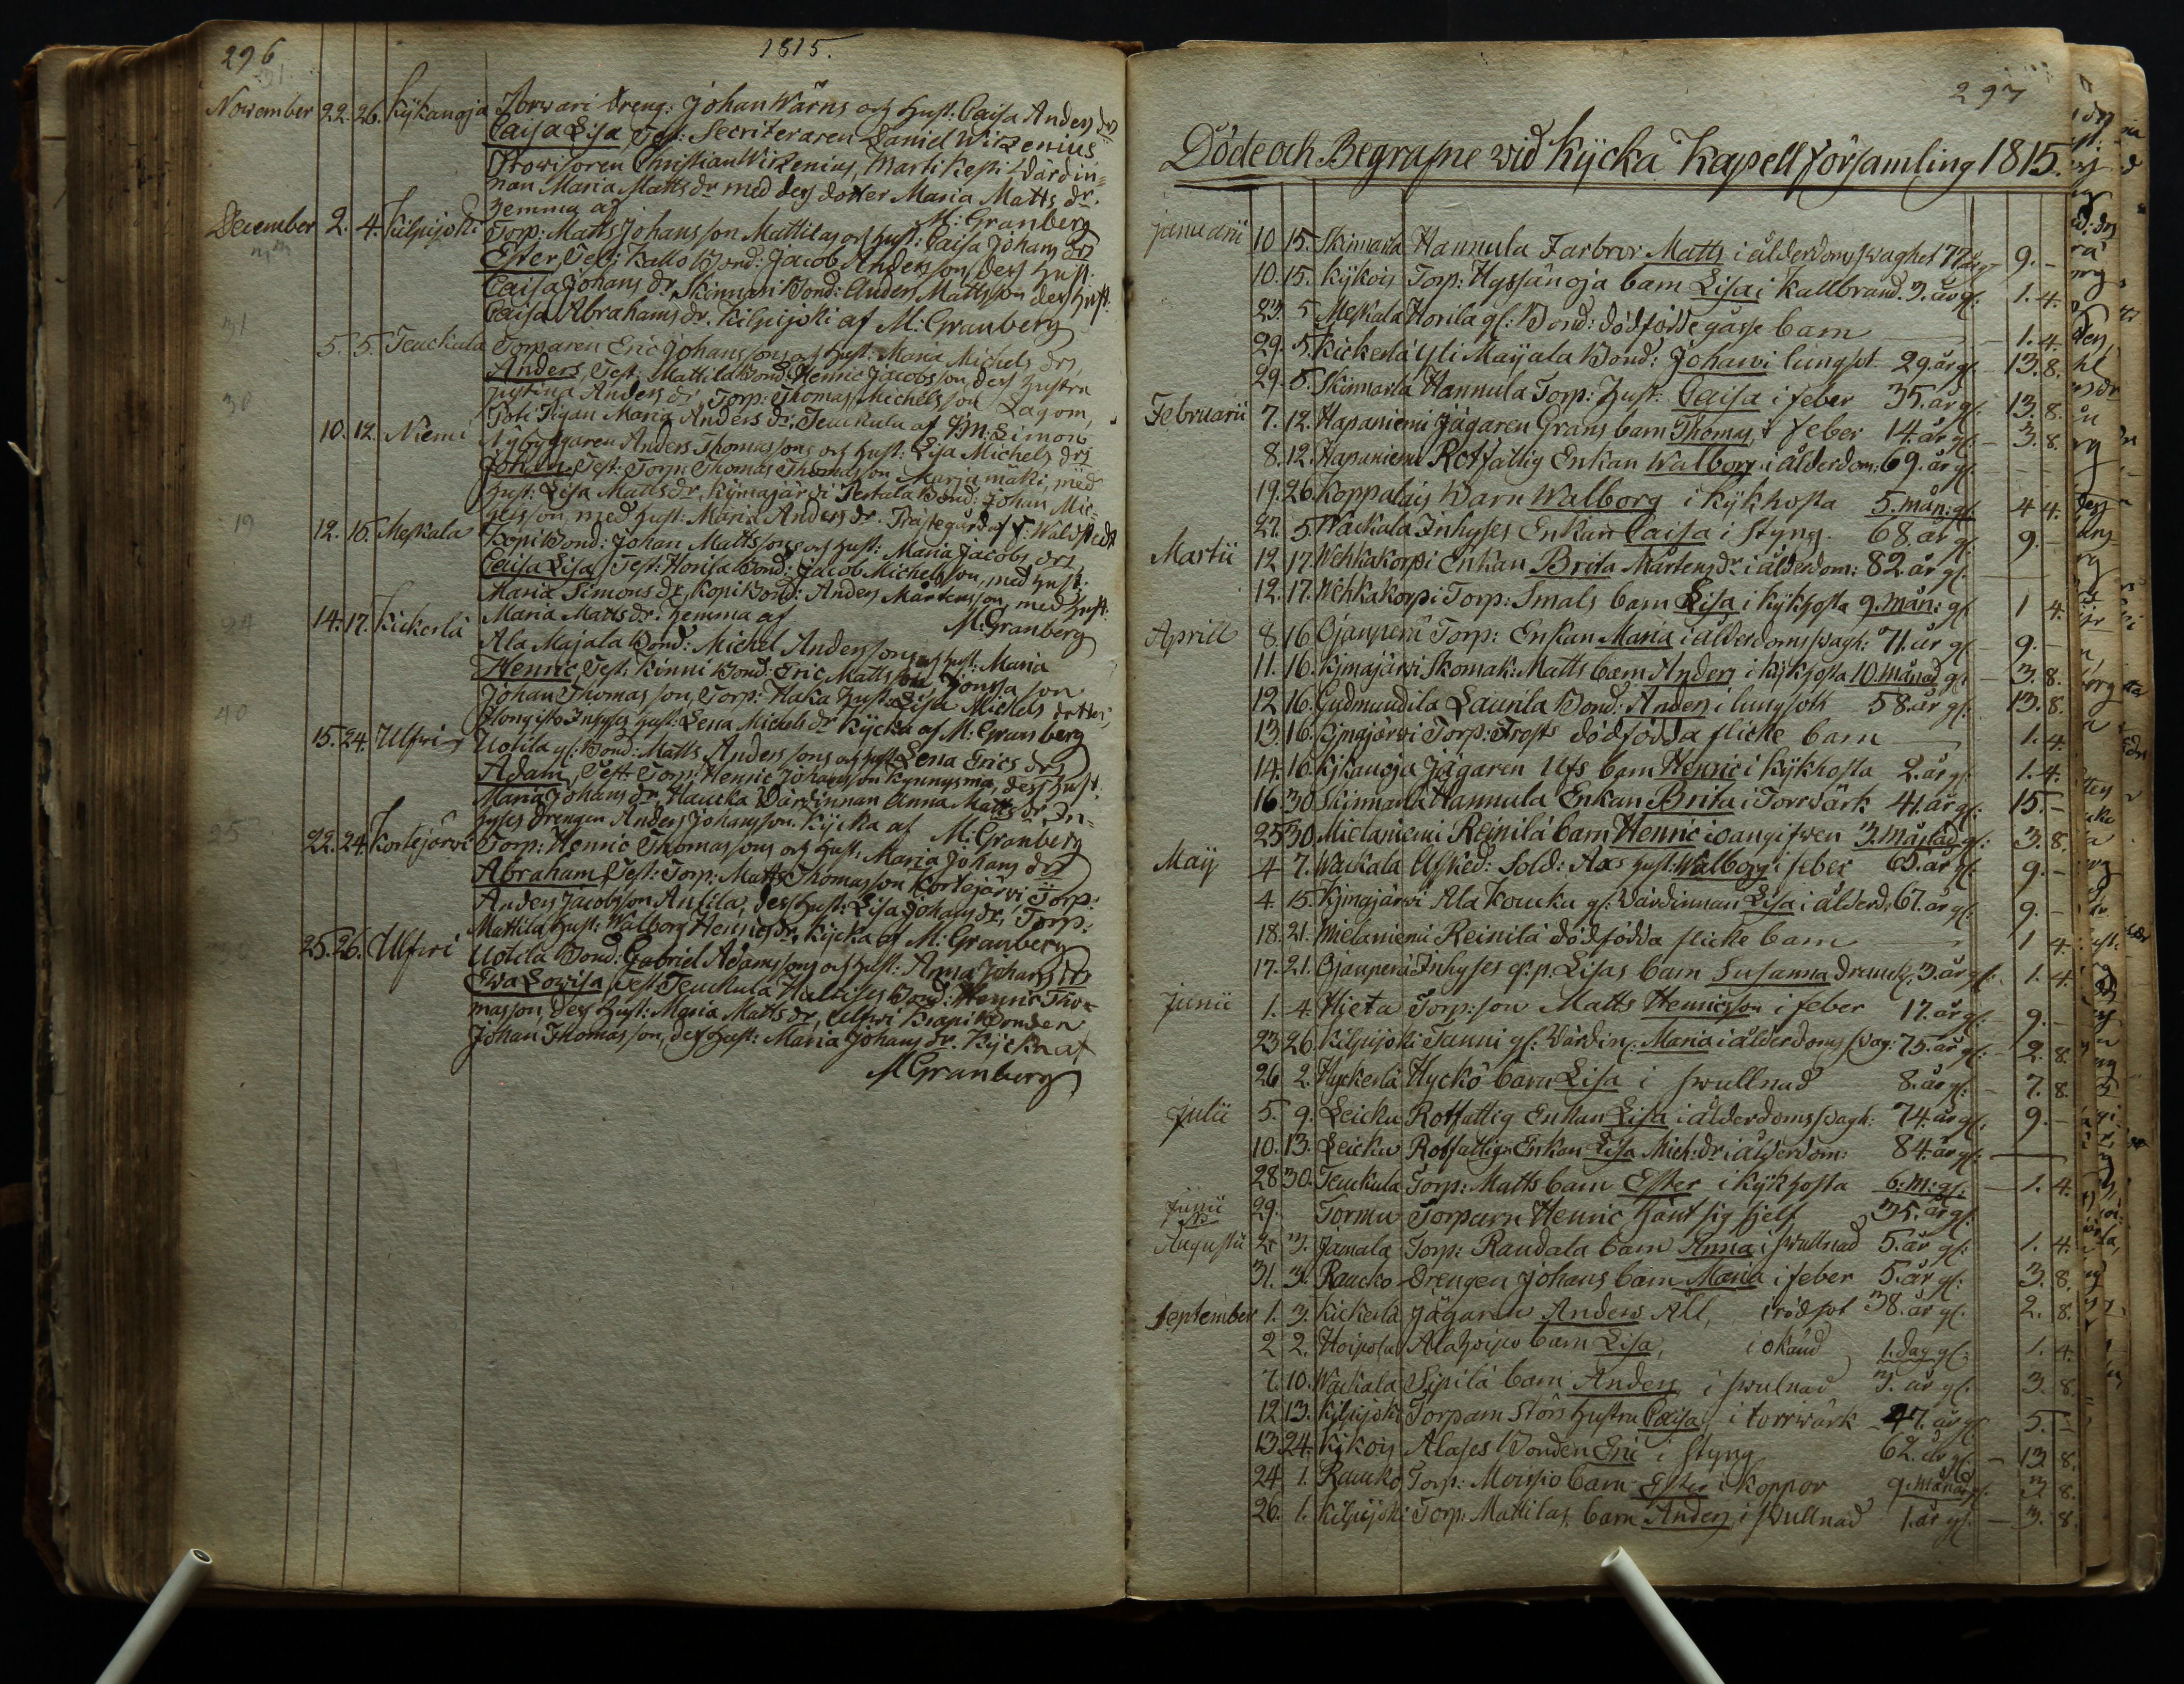 296
1815.
November 22. 26. Kykanoja Torwari dreng: Johan Wärns och hust. Caisa Anders drs
Caisa Lisa, Test: Secriteraren Daniel Wirzenius
Prowisoren Christian Wirzenius, Marti Keski wärdin=
nan Maria Matts dr med dess dotter Maria Matts dr.
Hemma af M: Granberg
December 2. 4. Kilpijoki Torp: Matts Johansson Mattilas och hust: Caisa Johans drs
Ester, Test: Kallo Bond: Jacob Andersson, dess hust:
Caisa Johans dr, Skinnari Bond: Anders Mattsson dess hust.
Caisa Abrahams dr. Kilpijoki af M: Granberg
5. 5. Teuckula Torparen Eric Johanssons och hust: Maria Michels drs,
Anders, Test: Mattila Bond: Henric Jacobsson, dess hustru
Justina Anders dr, Torp: Thomas Michelsson Lagom,
Pigan Maria Anders dr, Teuckula af Simon
10. 12. Niemi Nybyggaren Anders Thomassons och hust: Lisa Michels drs
Johan, Test: Torp: Thomas Thomasson Marjamäki, med
hust: Lisa Matts dr, Kymajärvi Pertala Bond: Johan Mic=
helsson, med hust: Maria Anders dr. Prästegård af Waldstedt
12. 16. Meskala Kopi Bond: Johan Mattssons och hust: Maria Jacobs drs,
Caisa Lisa, Test: Honsa Bond: Jacob Michelsson, med hust:
Maria Simons dr, Kopi Bond: Anders Mårtensson, med hust:
Maria Matts dr. hemma af M: Granberg
14. 17. Kickerlä Ala Majala Bond: Michel Anderssons och hust: Maria
Henric, Test: Kinni Bond: Eric Mattsson
Johan Thomasson, Torp: Haka hust: Lisa Michels dotter,
Inhyses hust: Lena Michels dr Kycka af M: Granberg
15. 24. Ulfwi Uotila gl. Bond: Matts Anderssons och hust: Lena Erics drs
Adam, Test: Torp: Henric Johansson Kynnysmä, dess hust.
Maria Johans dr, Haucka Wärdinnan Anna Matts dr, In=
hyses drengen Anders Johansson. Kycka af M: Granberg
22. 24. Kortejärwi Torp: Henric Thomassons och hust: Maria Johans drs
Abraham, Test: Torp: Matts Thomasson Kortejärvi, Torp:
Anders Jacobsson Antila, dess hust: Lisa Johans dr, Torp:
Mattila hust: Walborg Henrics dr, Kycka af M: Granberg
25. 26. Ulfwi Uotila Bond: Gabriel Adamssons och hust: Anna Johans drs
Ewa Lowisa, Test: Teuckula Bond: Henric Tho=
masson, dess hust: Maria Matts dr, Ulfwi Krapi Bonden
Johan Thomasson, dess hust: Maria Johans dr. Kycka af
M Granberg
297
Döde och Begrafne wid Kycka Kapell församling 1815.
Januarii 10 15. Skinnarla Hannula Farbror Matts i ålderdoms swaghet 77 år 9. –
10. 15. Kykois Torp: Hyssänoja barn Lisa i Kallbrand. 3. år gl. 1. 4.
23. 5 Meskala Honsla gl: Bond: dödfödde gosse barn – 1. 4.
29. 5. Kickerlä Yli Mayala Bond: Johan i lungsot 29. år gl. 13. 8.
29. 5. Skinnarla Hannula Torp: Hust: Caisa i feber 35. år gl. 13. 8.
Februarii 7. 12. Hapaniemi Jägaren Grans barn Thomas, i feber 14. år gl. – 3. 8.
8. 12. Hapaniemi Rotfattig Enkan Walborg i ålderdom: 69. år gl.
19. 26. Koppalais Barn Walborg i kykhosta 5. mån: gl 4 4.
27. 5. Wäckala Inhyses Enkan Caisa i styng. 68. år gl. 9. –
Martii 12 17. Wehkakorpi Enkan Brita Mårtens dr i ålderdom: 82. år gl.
12. 17. Wehkakorpi Torp: Smals barn Lisa i kykhosta 9. mån: gl 1 4.
Aprill 8. 16 Ojanperä Torp: Enkan Maria i ålderdoms swagh: 71. år gl – 9. –
11. 16. Kymajärwi Skomak: Matts barn Anders i kykhosta 10. månad gl. – 3. 8.
12 16. Gudmundila Launla Bond: Anders i lungsott 58. år gl. 13. 8.
13. 16. Kymajärwi Torp: Frosts dödfödda flicke barn – 1. 4.
14. 16. Kykanoja Jägaren Ufs barn Henric i kykhosta 2. år gl. 1. 4.
16 30. Skinnarla Hannula Enkan Brita i Torrwärk 41. år gl. 15. –
25 30. Mielaniemi Reinilä barn Henric i oangifwen 3. månad. gl: 3. 8.
May 4 7. Wäckala Afsked: Sold: Aas hust: Walborg i feber 65. år gl. 9. –
4. 15. Kymajärwi Ala Koucku gl: Wärdinnan Lisa i ålderd, 67. år gl. 9. –
18. 21. Mielaniemi Reinilä dödfödda flicke barn 1 4.
17. 21. Ojanperä Inhyses q: p. Lisas barn Susanna drunk, 3. år gl. 1. 4.
Junii 1. 4. Hieta Torp: son Matts Henricsson i feber 17. år gl. 9. –
23 26. Kilpijoki Tanni gl. Wärdin: Maria i ålderdoms swag: 75. år gl: – 2. 8.
26 2. Hyckerlä Hyckö barn Lisa i swullnad 8. år gl. – 7. 8.
Julii 5. 9. Leicku Rotfattig Enkan Lisa i ålderdoms swagh: 74. år gl. 9. –
10. 13. Leicku Rotfattig Enkan Lisa Mich: dr i ålderdom: 84 år gl. –
28 30. Teuckula Torp: Matts barn Ester i kykhosta 6. m: gl: – 1. 4.
Junii 29. Tormu Torparn Henric hänt sig sjelf 35. år gl.
Augusti 2. 3. Jamala Torp: Raudala barn Anna i swullnad 5. år gl: 1. 4.
31. 3. Raucko Drengen Johans barn Maria i feber 5. år gl. 3. 8.
September 1. 3. Kickerlä Jägaren Anders All, i rödsot 38. år gl. 2. 8.
2 2. Hoipola Alahoipo barn Lisa, i okänd 1. dag gl. 1. 4.
7. 10. Wäckala Sipilä barn Anders i swulnad 3. år gl. 3. 8.
12 13. Kilpijoki Torparn Störs hustru Caisa i torrwärk 47. år gl 5. –
13 24. Kykois Alases Bonden Eric i styng 62. år gl. – 13 8.
24 1. Raucko Torp: Moisio barn Ester i Koppor 9. månad gl. 3 8.
26. 1. Kilpijoki Torp. Mattilas barn Anders i swullnad 1. år gl. – 3. 8.